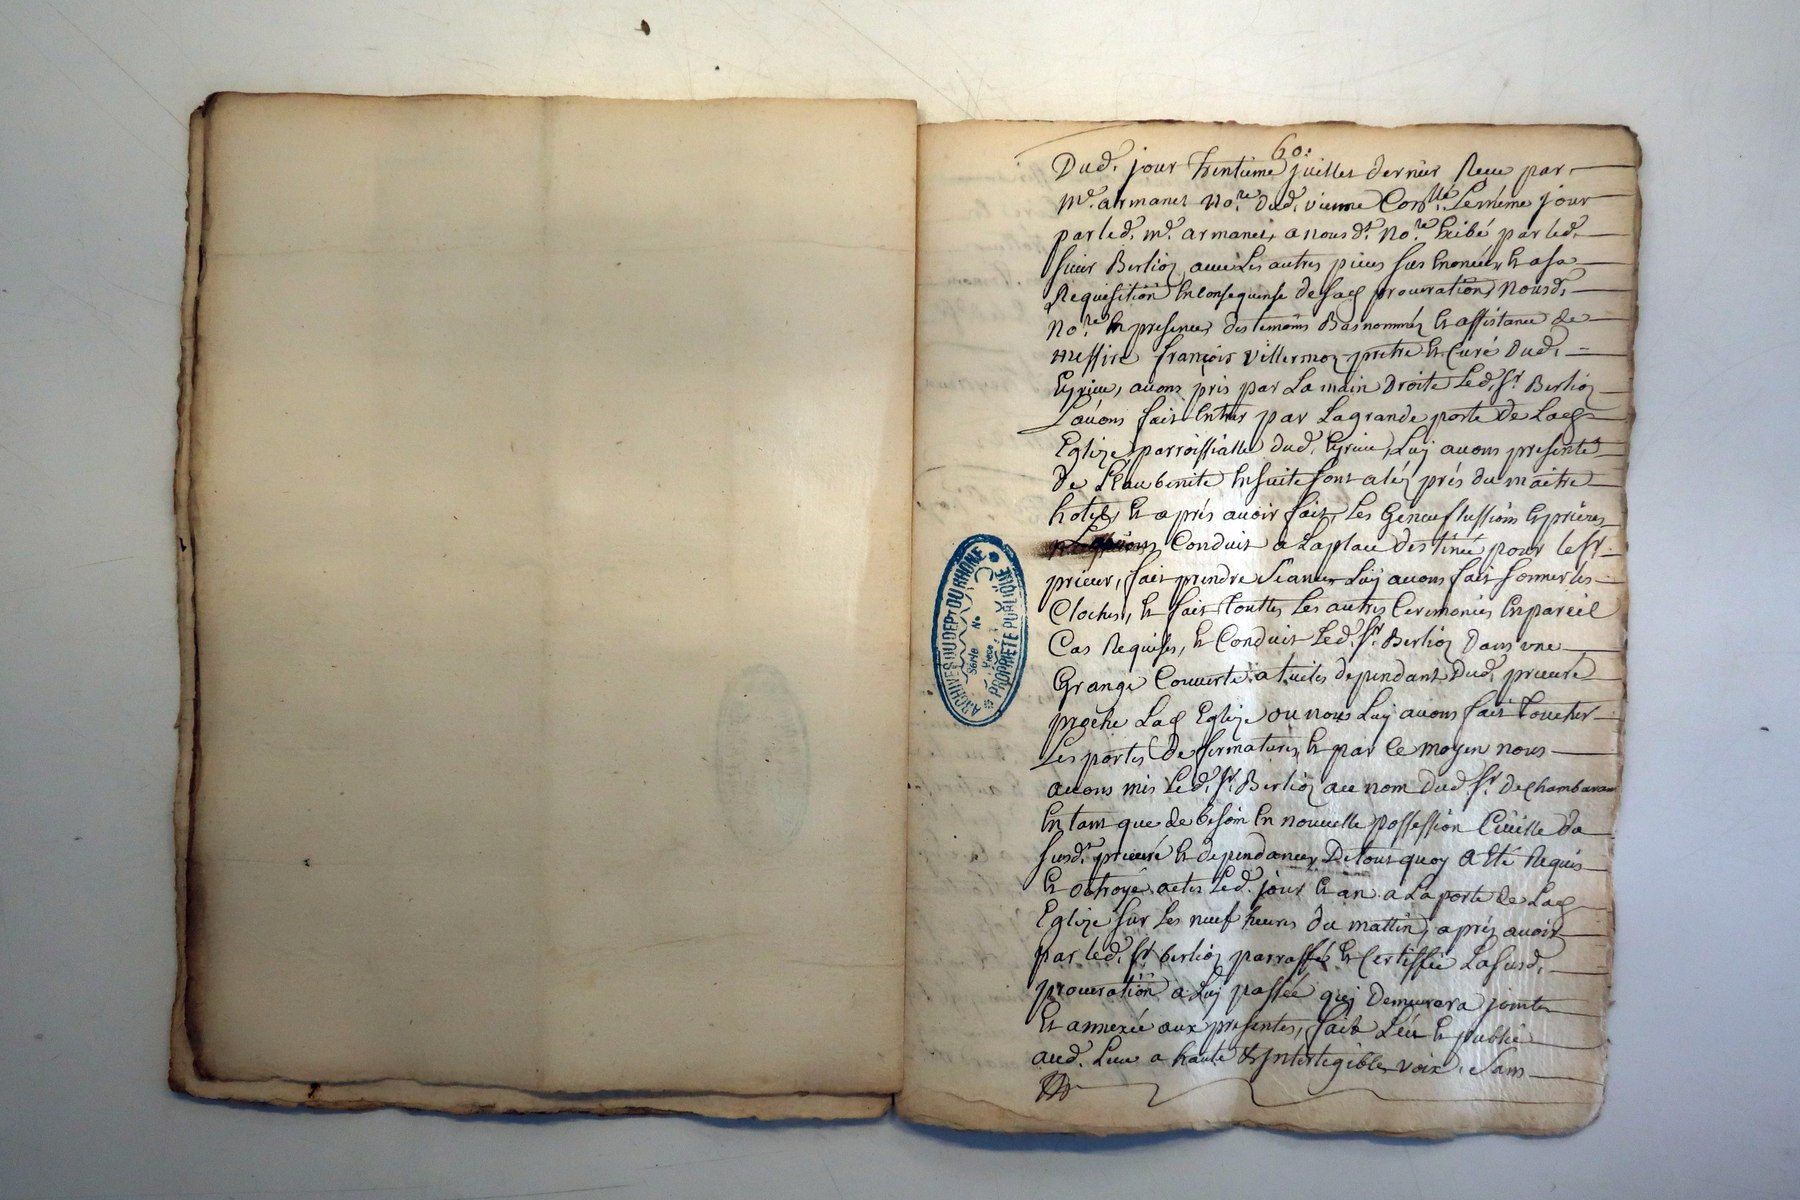 60:
Dud. jour trentieme juillet dernier Receu par
Me. armanet No.re dud. vienne Con.llé Lememe jour
par led. me. armanet, a nous dt. No.re Exibé par led.
sieur Berlioz avec Les autres pieces sus Enoncées, Et a sa
Requisition En Consequense de Sad procuration, Nousd.
No.re En presence des temoins Bas nommez Et assistance de
messire françois villermoz pretre Et Curé dud.
Eyrieu, avons pris par La main droite Led. Sr. Berlioz
L'avons fait Entrer par La grande porte de Lad
Eglize parroissialle dud. Eyrieu, Luy avons presenté
de L'Eau benite Ensuite sont aléz prés du maitre
hotel, Et aprés avoir fait Les Geneuflussions Et prieres
L'avons Conduit a La place destinée pour le Sr.
prieur, fait prendre Seance Luy avons fait sonner les
Cloches, Et fait touttes Les autres Ceremonies En pareil
Cas Requises, Et Conduit Led. Sr. Berlioz dans une
Grange Couverte a tuiles dependant dud. prieuré
proche Lad Eglize ou nous Luy avons fait toucher
Les portes de fermatures, Et par Ce moyen nous
avons mis Led. Sr. Berlioz au nom dud. Sr. de Chambaran
En tant que de besoin En nouvelle possession Civille du
susd. prieuré Et dependances, De tout quoy a Eté Requis
Et octroyé actes Led. jour Et an a La porte de Lad
Eglize sur Les neuf heures du mattin, aprés avoir
par led. Sr. berlioz parraffé Et Certiffié La susd.
procuration a Luy passée qui demeurera jointe
Et annexée aux presentes, fait Leu Et publié
aud. Lieu a haute Et Intertegible voix. Sans
ARCHIVES DU DEPT DU RHÔNE
Série
No
Pièce
PROPRIÉTÉ PUBLIQUE